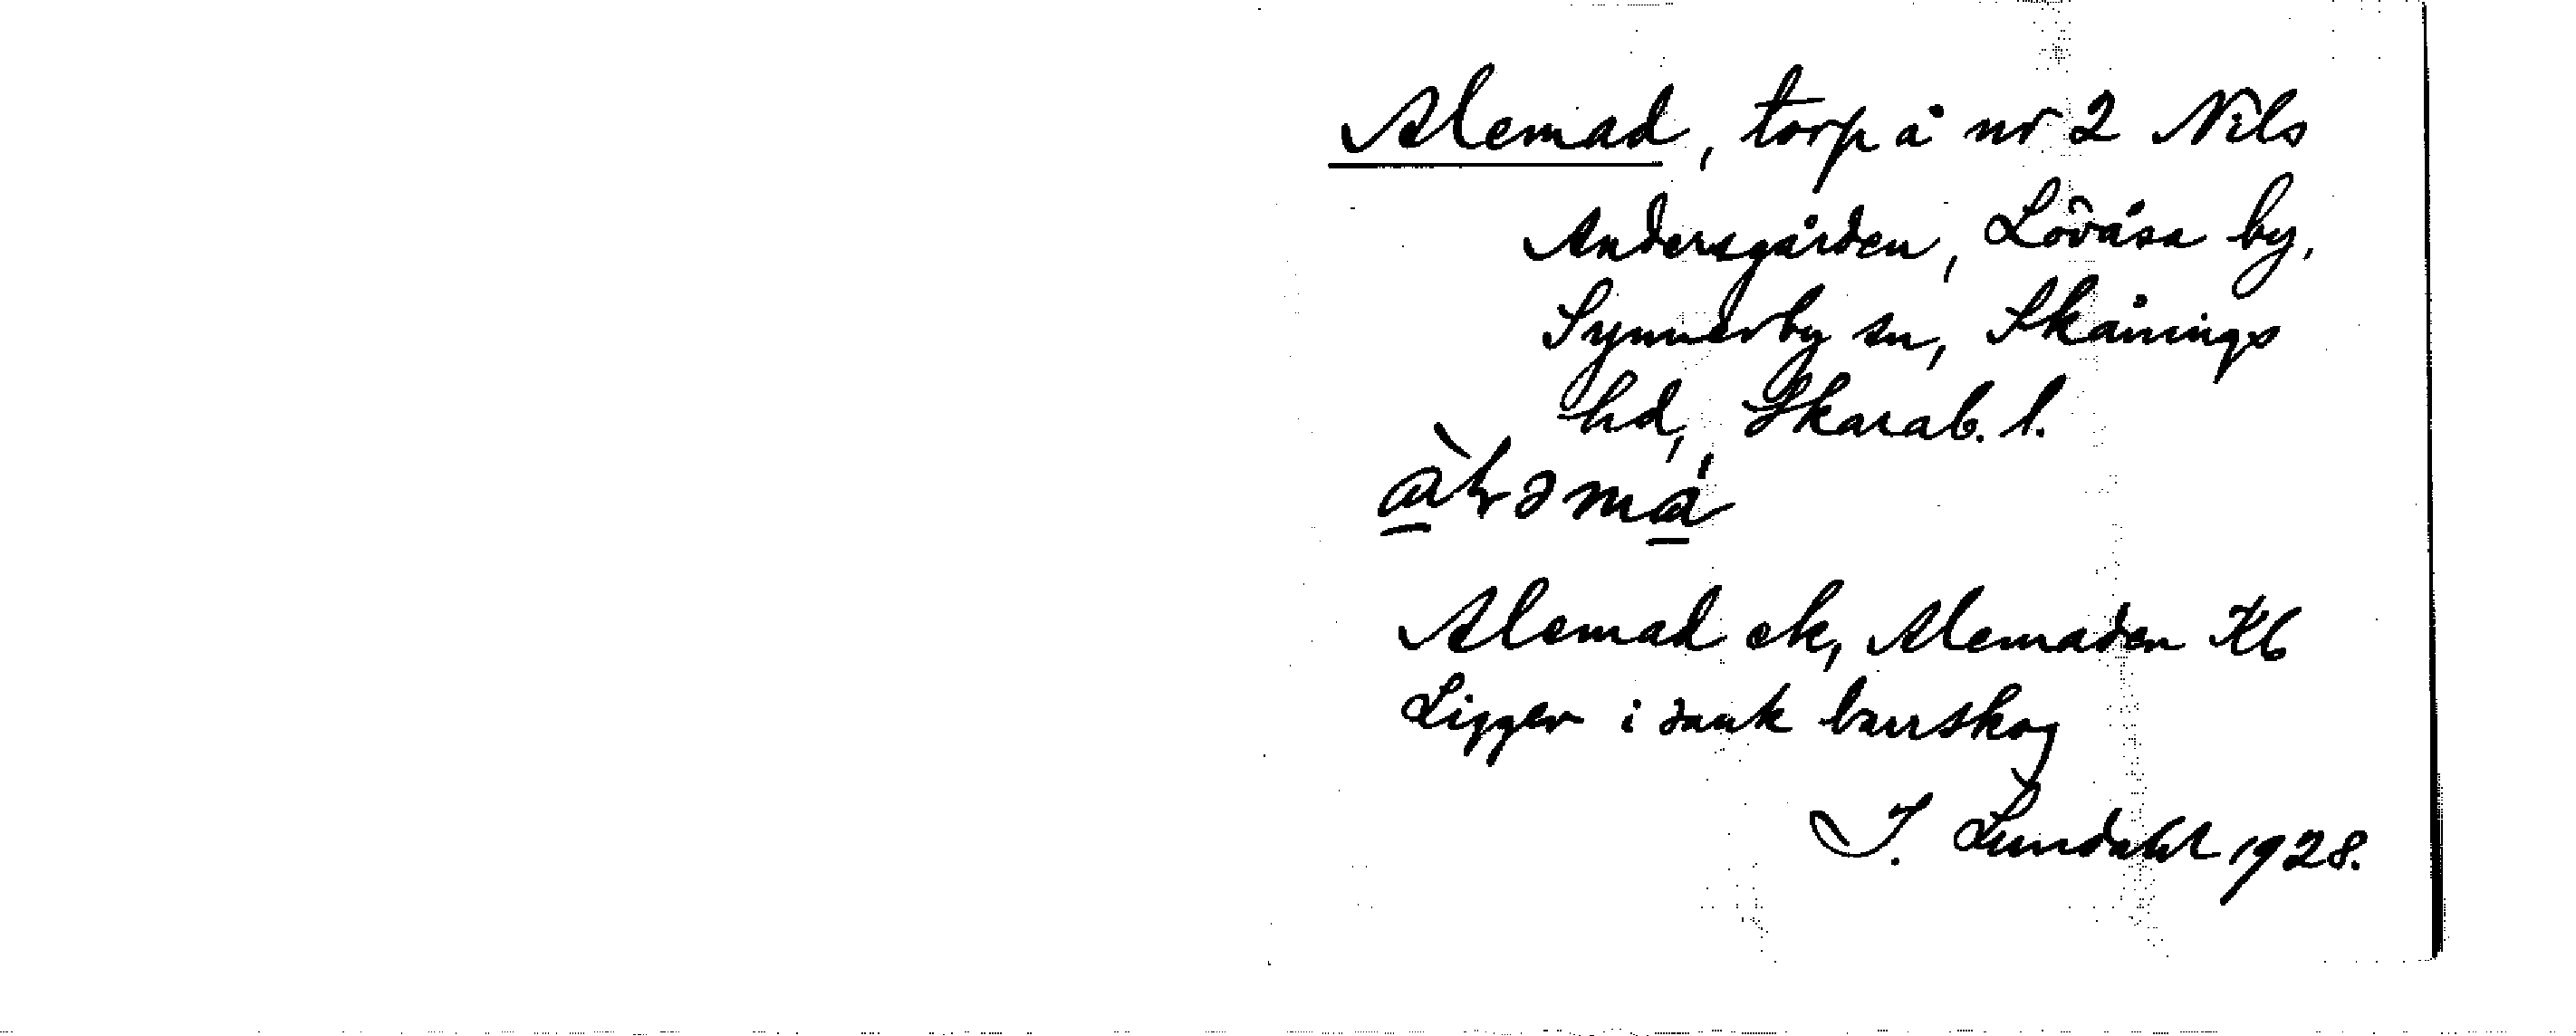 Alemad, torp å nr 2 Nils
Andersgården, Lövåsa by,
Synnerby sn, Skånings
hd, Skarab. l.
Alemad ek, Alemaden Kb
Ligger i sank barrskog
I. Lundahl 1928.